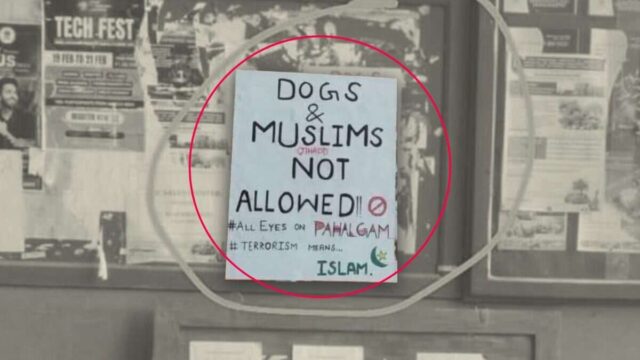 TECH FEST
19 FEB TO 21 FEB
DOGS
&
MUSLIMS
JIHADI
NOT
ALLOWED!!
#ALL EYES ON PAHALGAM
# TERRORISM MEANS...
ISLAM.